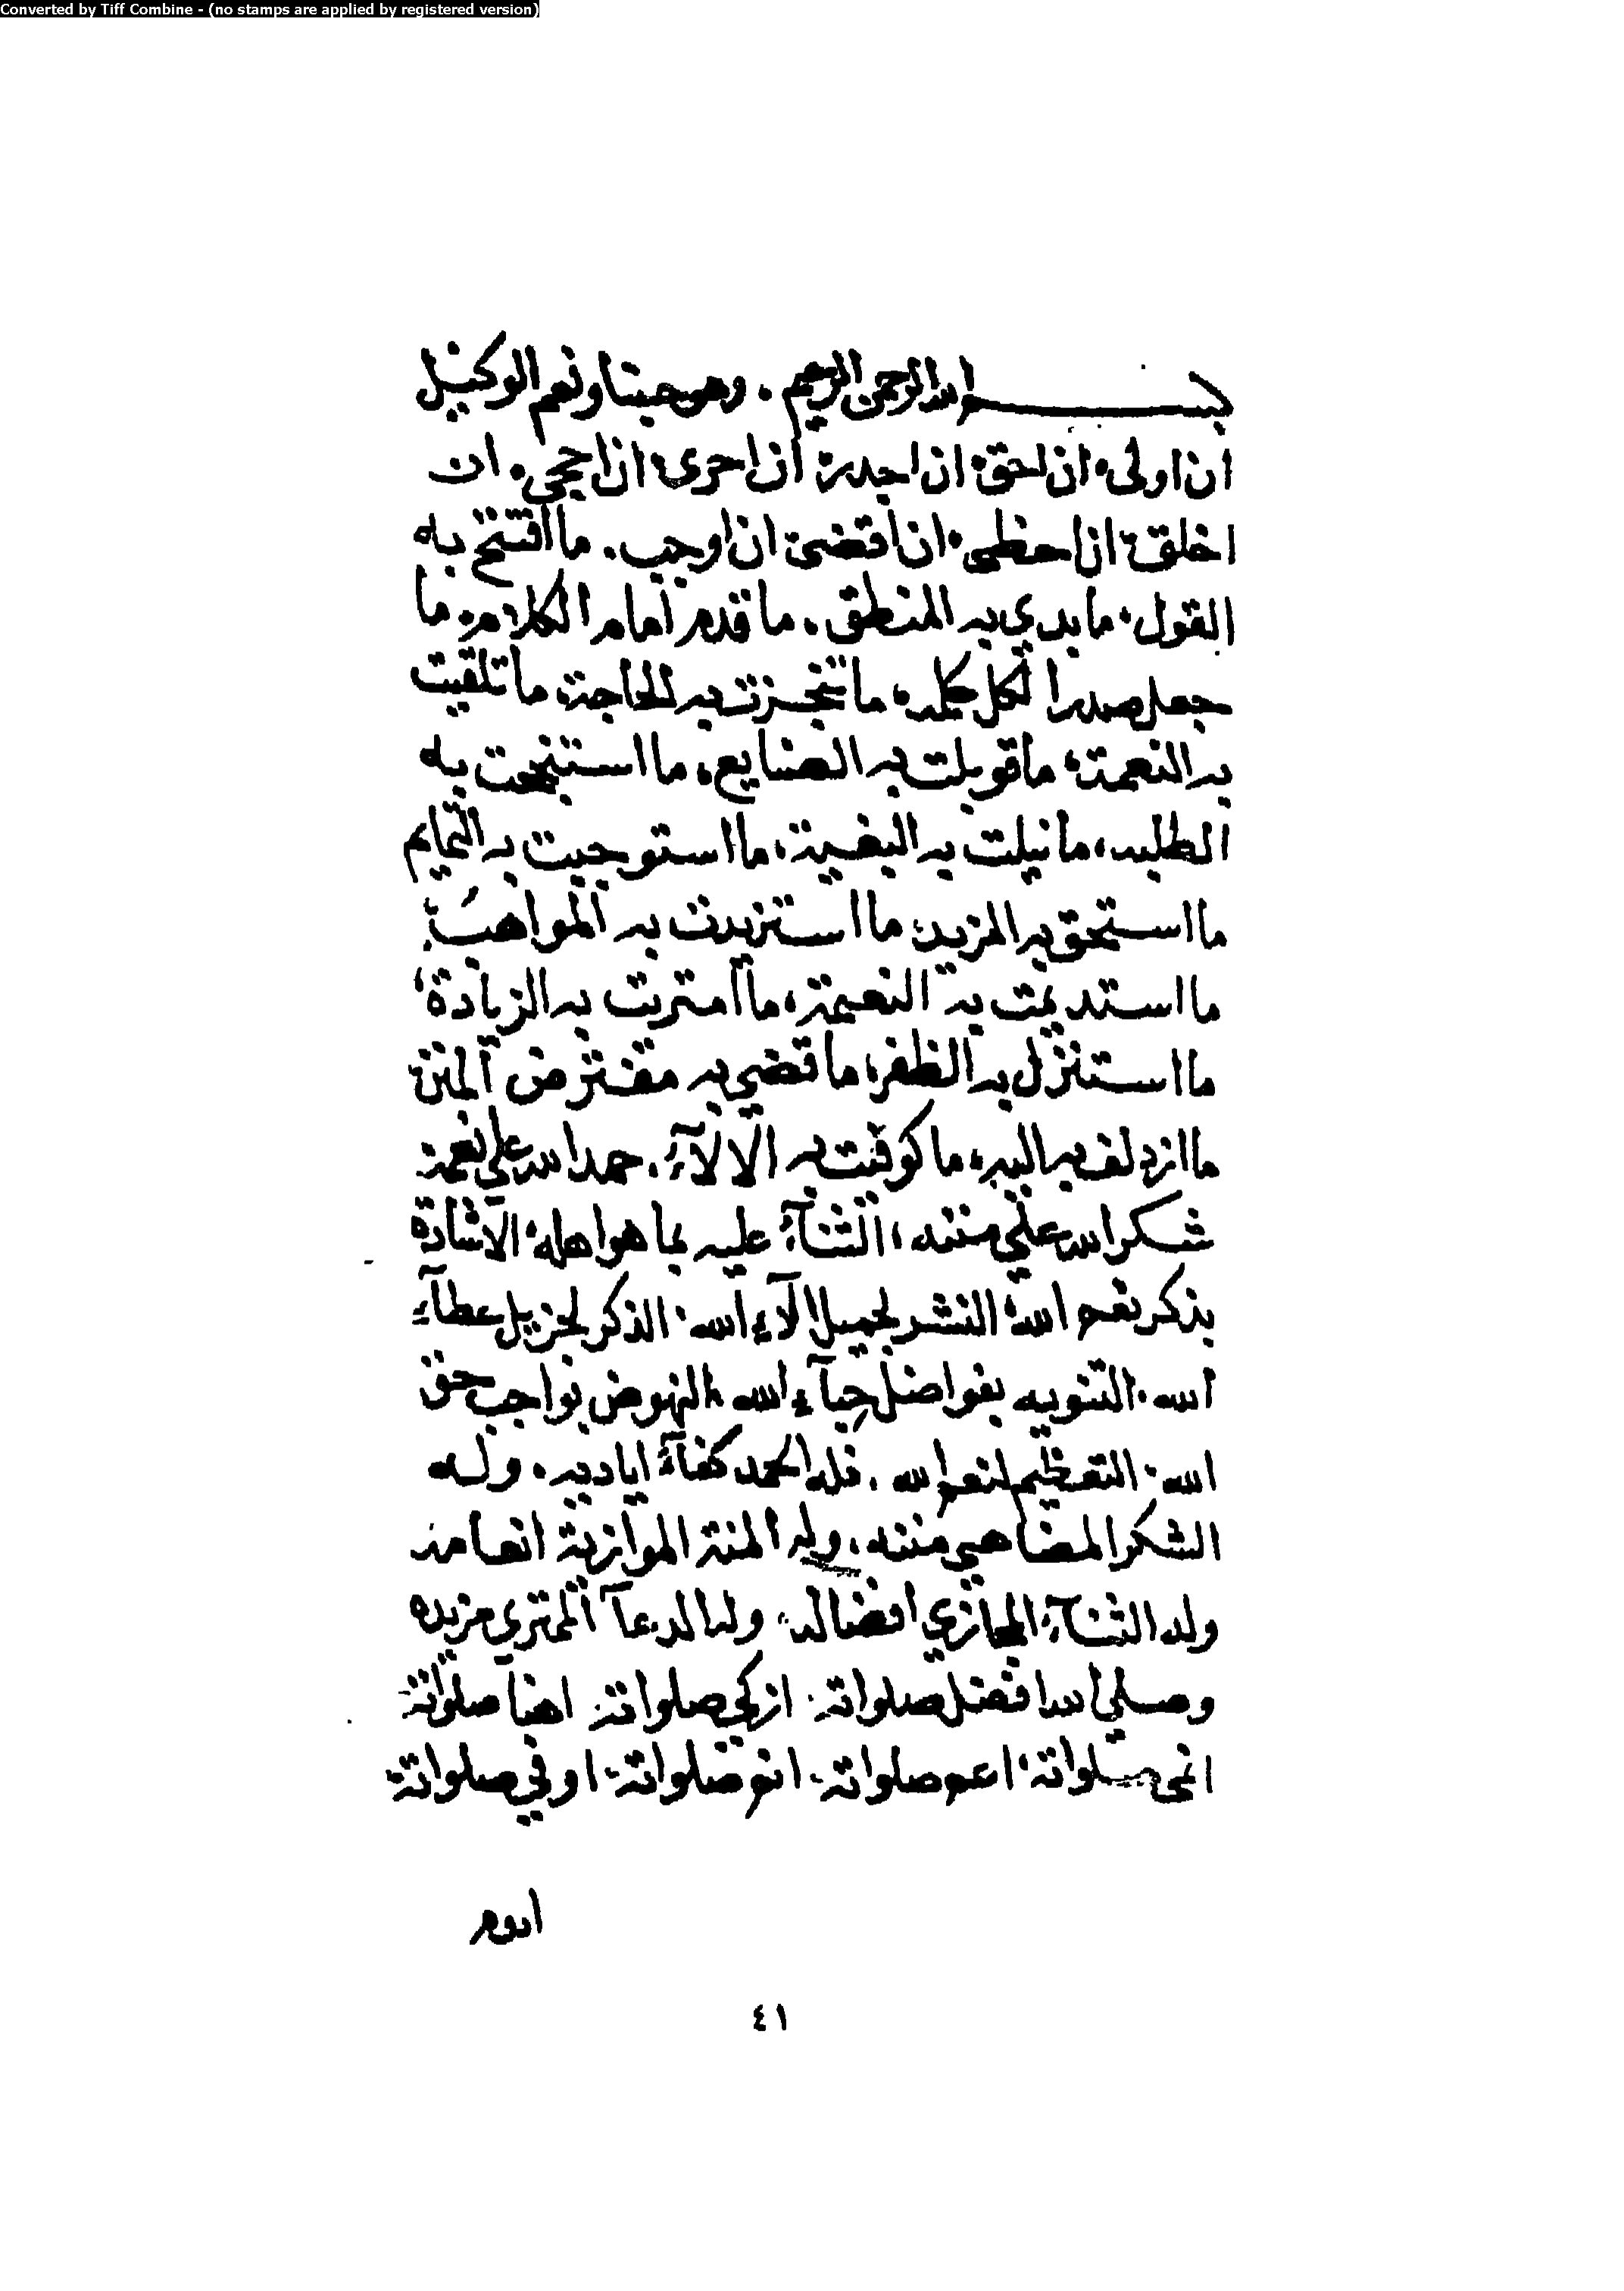 Converted by Tiff Combine - (no stamps are applied by registered version)
بسم الله الرحمن الرحيم . وهو حسبنا ونعم الوكيل
ان اولى، ان احق، ان اجدر، ان احرى، ان احجى، ان
اخلق، ان احظى، ان اقضى، ان اوجب . ما افتتح به
القول، ما بدي به المنطق، ما قدم امام الكلام، ما
جعل صدرا لكل كلمه، ما تنجزت به الحاجة، ما تلقيت
به النعمة، ما قوبلت به الصنايع، ما استنجحت به
الطلبه، ما نيلت به البغية، ما استوجبت به التمايم
ما استحق به المزيد، ما استزيدت به المواهب،
ما استديمت به النعيمة، ما امتريت به الزيادة،
ما استنزل به الظفر، ما قضي به مفترض المنن،
ما ازدلف به اليه، ما كوفئت به الالآء . حمد الله على نعمه
شكر الله على مننه، الثنآء عليه بما هو اهله، الاشادة
بذكر نعم الله، النشر لجميل الآء الله، الذكر لجزيل عطآء
الله، التنويه بفواضل حبآء الله، النهوض بواجب حق
الله، التعظيم لنعم الله . فله الحمد كفآء اياديه، وله
الشكر المضاهي مننه، وله المنة الموازية انعامه
وله الثنآء المجازي افضاله، وله الدعآ الممتري مزيده
وصلى الله افضل صلواته، ازكى صلواته، اهنا صلواته
انمى صلواته، اعم صلواته، اتم صلواته، اوفى صلواته
ادوم
٤١